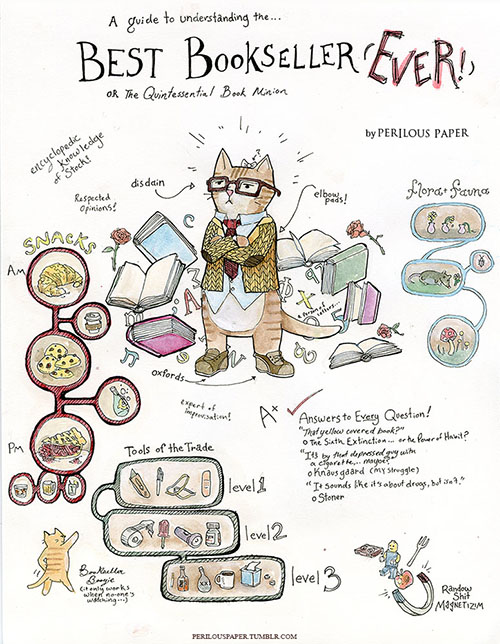 A guide to understanding the...
BEST BOOKSELLER (EVER!)
OR The Quintessential Book Minion
by PERILOUS PAPER
encyclopedic
Knowledge
of Stock!
disdain
Respected
Opinions!
elbow
pads!
flora + fauna
SNACKS
AM
PM
oxfords
expert of
improvisation!
A+
Answers to Every Question!
"That yellow covered book?"
o The Sixth Extinction... or the Power of Habit?
"It's by that depressed guy with
a cigarette,... maybe?"
o Knausgaard (My Struggle)
"It sounds like it's about drugs, but isn't."
o Stoner
Tools of the Trade
level 1
level 2
level 3
Bookseller
Boogie
(it only works
when no-one's
watching...)
Random
Shit
MAGNETIZM
PERILOUSPAPER.TUMBLR.COM